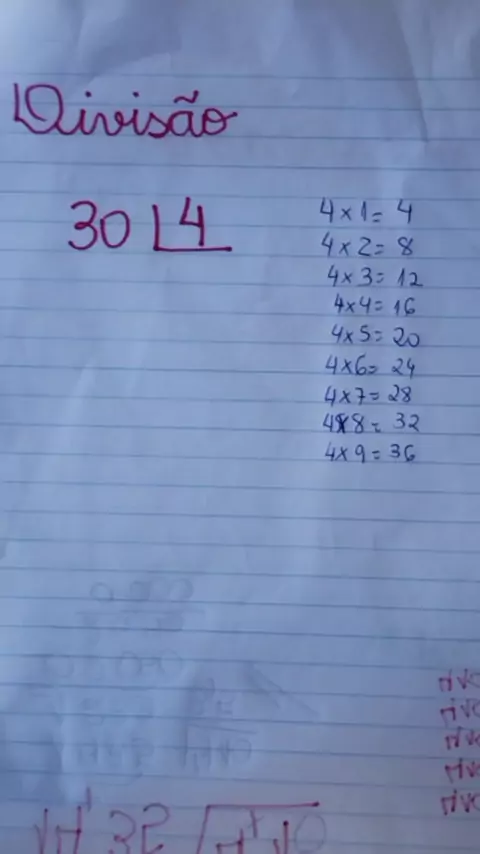 Divisão
30 4
4x1= 4
4x2= 8
4x3= 12
4x4= 16
4x5= 20
4x6= 24
4x7= 28
4x8= 32
4x9= 36